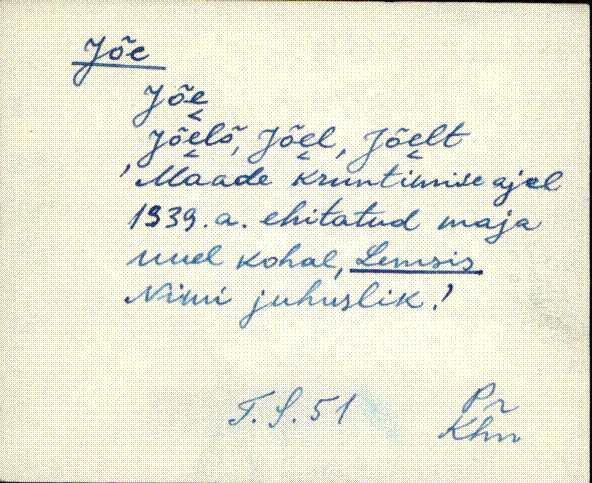 Jõe
Jõe̬
Jõe̬lõ, Jõe̬l, Jõe̬lt
'Maade kruntimise ajal
1939. a. ehitatud maja
uuel kohal, Lemsis
Nimi juhuslik.'
T. S. 51 Pr
Khn